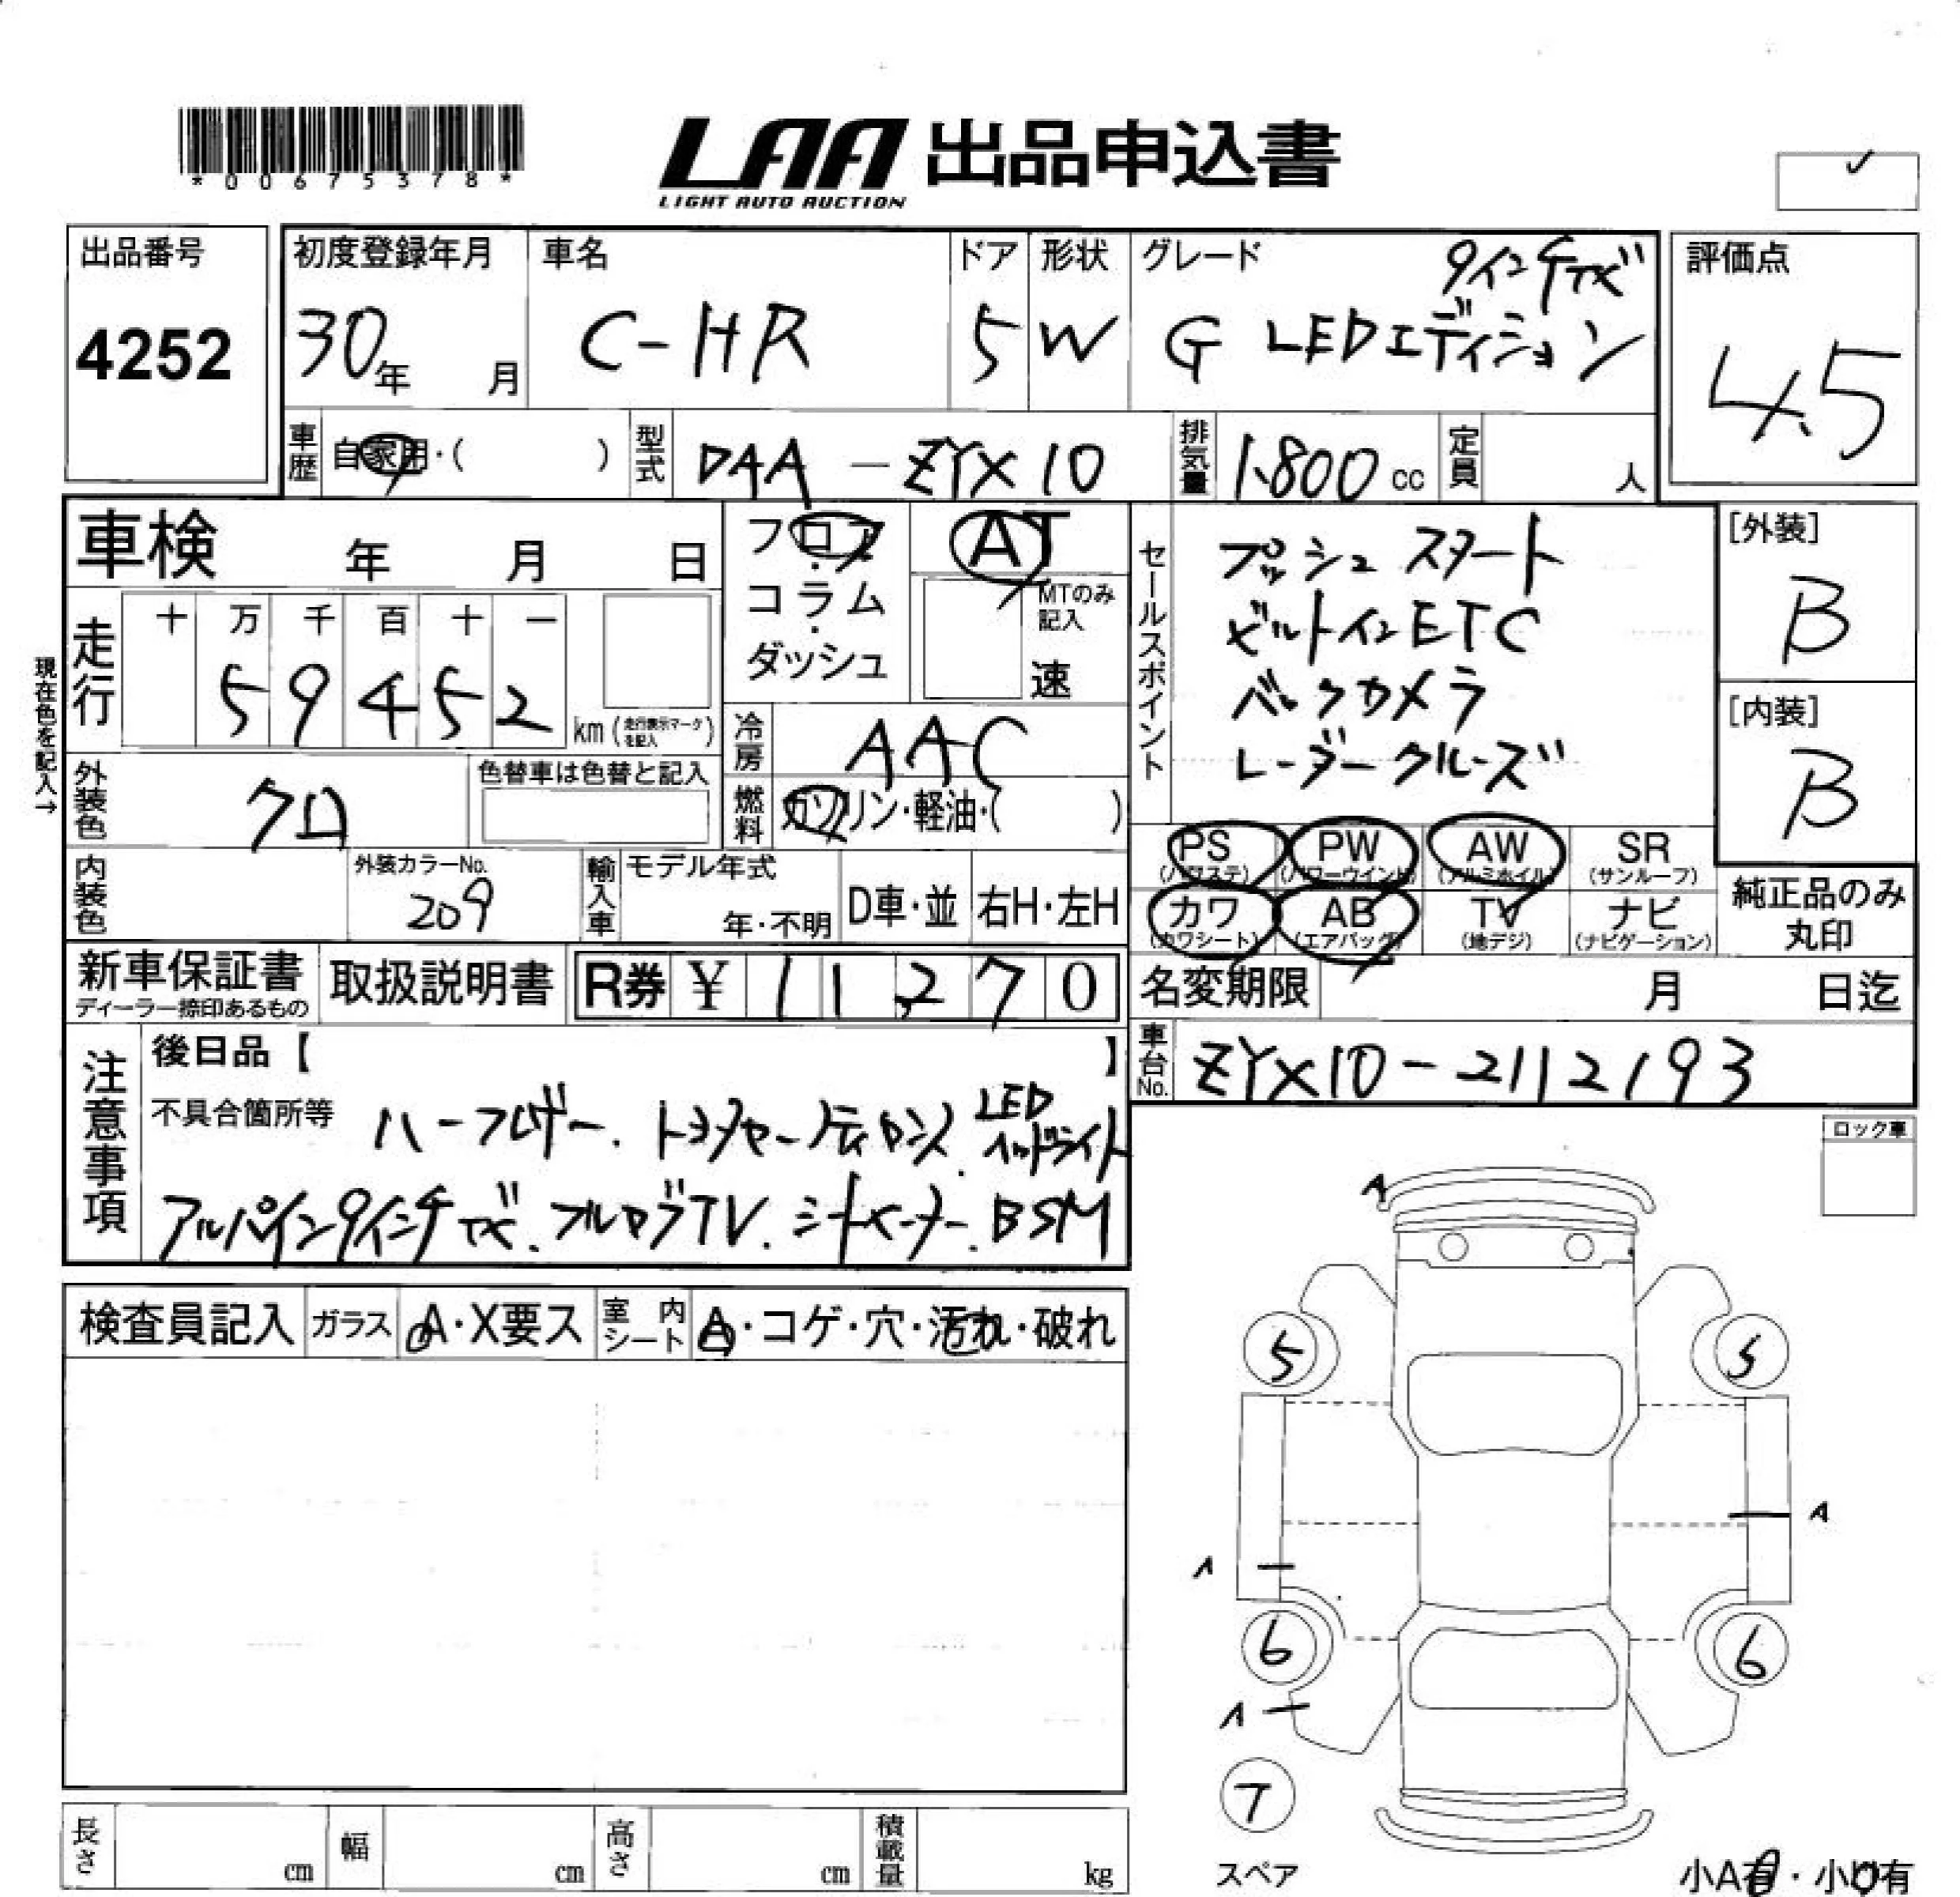 *00675378*
LAA 出品申込書
LIGHT AUTO AUCTION
✓
出品番号 4252
初度登録年月 30年 月
車名 C-HR
ドア 5
形状 W
グレード 9インチナビ
G LEDエディション
評価点 4.5
車歴 自家用・( )
型式 DAA-ZYX10
排気量 1.800cc
定員 人
車検 年 月 日
フロア・コラム・ダッシュ
AT
MTのみ記入
速
セールスポイント
プッシュスタート
ビルトインETC
バックカメラ
レーダークルーズ
[外装] B
[内装] B
現在色を記入→
走行 十 万 千 百 十 一
59452
km (走行表示マークを記入)
冷房 AAC
外装色 クロ
色替車は色替と記入
燃料 ガソリン・軽油・( )
PS (パワステ)
PW (パワーウインド)
AW (アルミホイル)
SR (サンルーフ)
カワ (カワシート)
AB (エアバッグ)
TV (地デジ)
ナビ (ナビゲーション)
純正品のみ丸印
内装色
外装カラーNo. 209
輸入車
モデル年式 年・不明
D車・並
右H・左H
新車保証書
ディーラー捺印あるもの
取扱説明書
R券 ¥ 11,270
名変期限 月 日迄
車台No. ZYX10-2112193
注意事項
後日品【 】
不具合箇所等 ハーフレザー.トヨタセーフティセンス.LEDヘッドライト
アルパイン9インチナビ.フルセグTV.シートヒーター.BSM
ロック車
A
検査員記入
ガラス A・X要ス
室内シート A・コゲ・穴・汚れ・破れ
5 5
A
A
6 6
A
T
スペア
長さ cm
幅 cm
高さ cm
積載量 kg
小A有・小U有